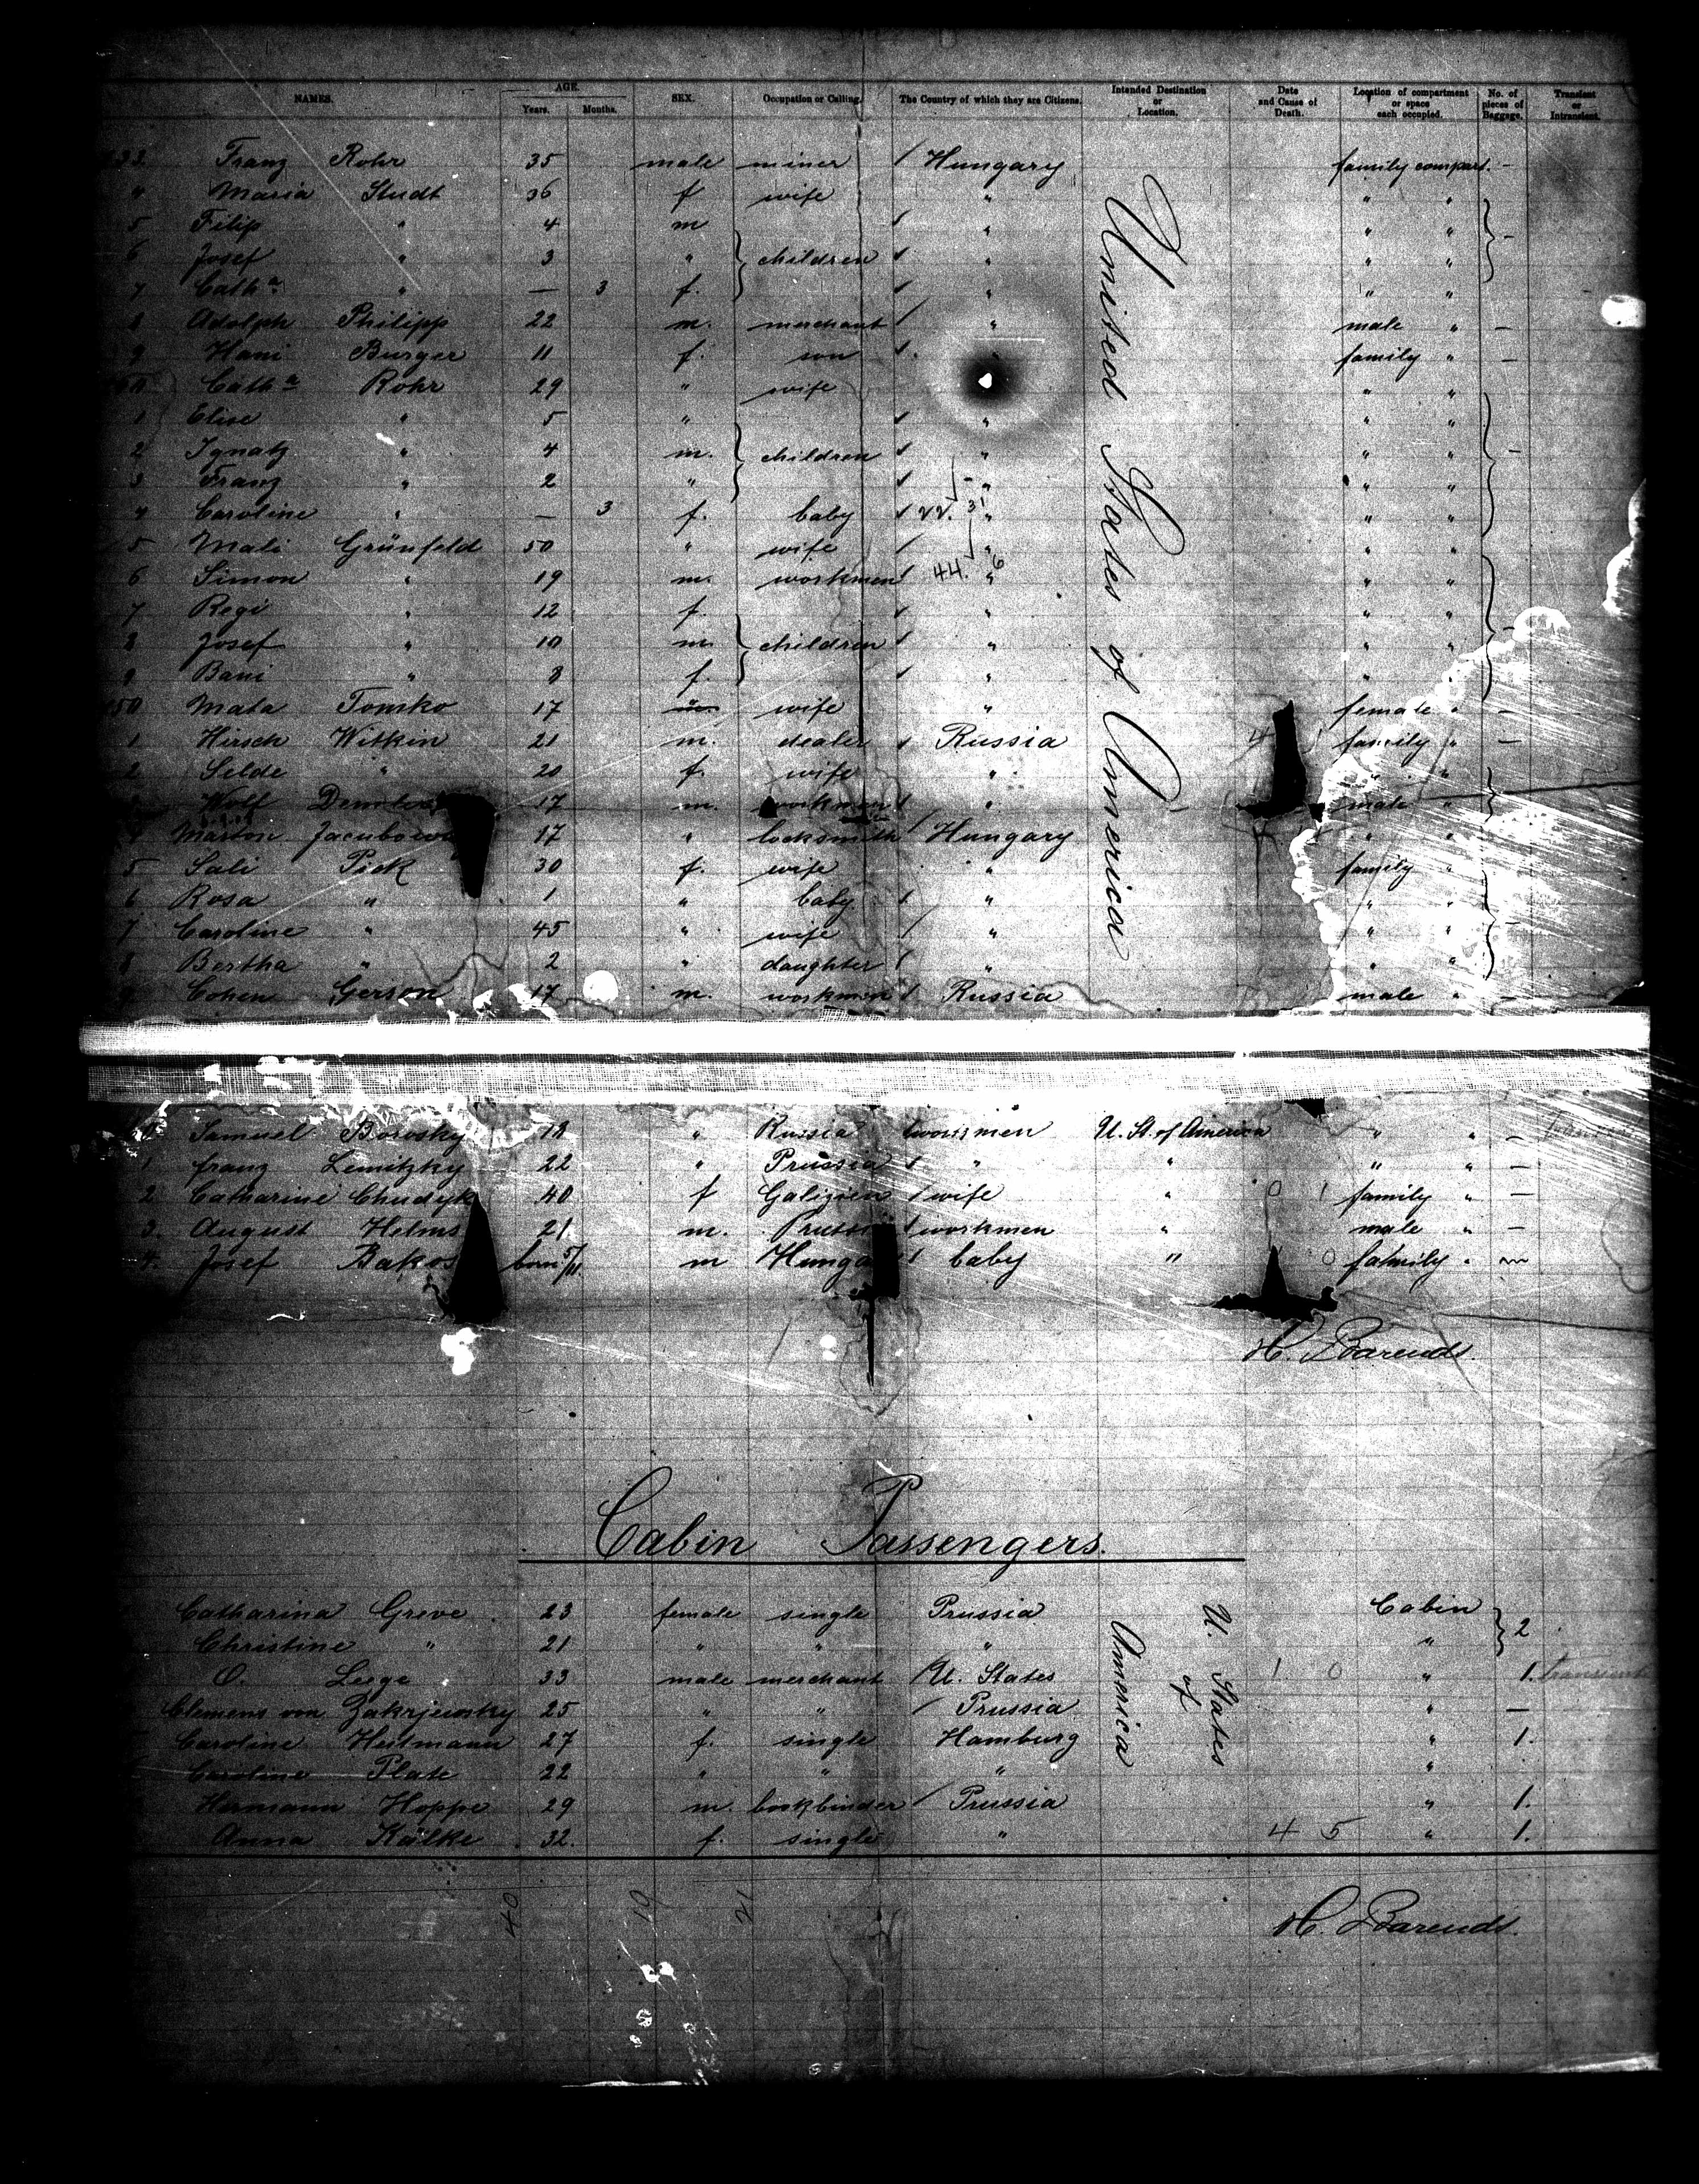 NAMES. AGE. Years. Months. SEX. Occupation or Calling. The Country of which they are Citizens. Intended Destination or Location. Date and Cause of Death. Location of compartment or space each occupied. No. of pieces of Baggage. Transient or Intransient.
Franz Rohr 35 male miner / Hungary family compart. -
" Maria Studt 36 f wife " " "
5 Filip " 4 m " " "
6 Josef " 3 " children " " "
7 Cath a. " — 3 f. " " "
8 Adolph Philipp 22 m. merchant / " male " -
9 Hani Burger 11 f. son " family " -
Cath a Rohr 29 " wife " " "
1 Elise " 5 " " " "
2 Ignatz " 4 m. children " " " -
3 Franz " 2 " " " "
4 Caroline " — 3 f. baby " " "
5 Mali Grünfeld 50 " wife / " " "
6 Simon " 19 m. workmen / 44. 6 " " "
7 Regi " 12 f. " " "
8 Josef " 10 m. children " " "
9 Bani " 8 f. " " "
Mata Tomko 17 wife " female " -
1 Hirsch Witkin 21 m. dealer Russia 4 family " -
2 Selde " 20 f. wife " "
Wolf 17 m. workmen " male "
Marton 17 " locksmith / Hungary " "
5 Sali Pick 30 f. wife " family "
6 Rosa " 1 " baby " " "
7 Caroline " 45 " wife / " " " -
8 Bertha " 2 " daughter " " "
Cohen Gerson 17 m. workmen Russia male " -
United States of America
Samuel Borosky 18 " Russia workmen U. St. of America " " -
1 Franz Lemitzky 22 " Prussia " " " " -
2 Catharine Chudyk 40 f Galizien / wife " 0 1 family " -
3. August Helms 21. m. workmen " male " -
4. Josef Bakos born 5/11. m baby " 0 family "
H. Barends.
Cabin Passengers.
Catharina Greve 23 female single Prussia Cabin 2
Christine " 21 " " " "
O. Leege 33 male merchant / U. States 1 0 " 1. transient
Clemens von Zakrjewsky 25 " " / Prussia " —
Caroline Heitmann 27 f. single Hamburg " 1.
Caroline Plate 22 " " " "
Hermann Hoppe 29 m. bookbinder / Prussia " 1.
Anna Kälke 32. f. single " 4 5 " 1.
U. States of America
40 19 21
H. Barends.